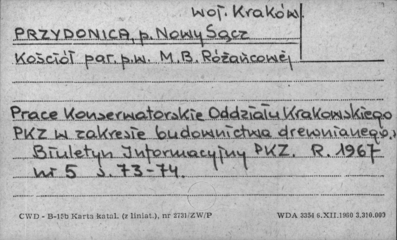 woj. Kraków
PRZYDONICA, p. Nowy Sącz
Kościół par. p.w. M.B. Różańcowej
Prace Konserwatorskie Oddziału Krakowskiego
PKZ w zakresie budownictwa drewnianego.,
Biuletyn Informacyjny PKZ. R. 1967
nr 5 s. 73-74.
CWD - B-15b Karta katal. (z liniat.), nr 2731/ZW/P WDA 3334 6.XII.1960 3,310.003